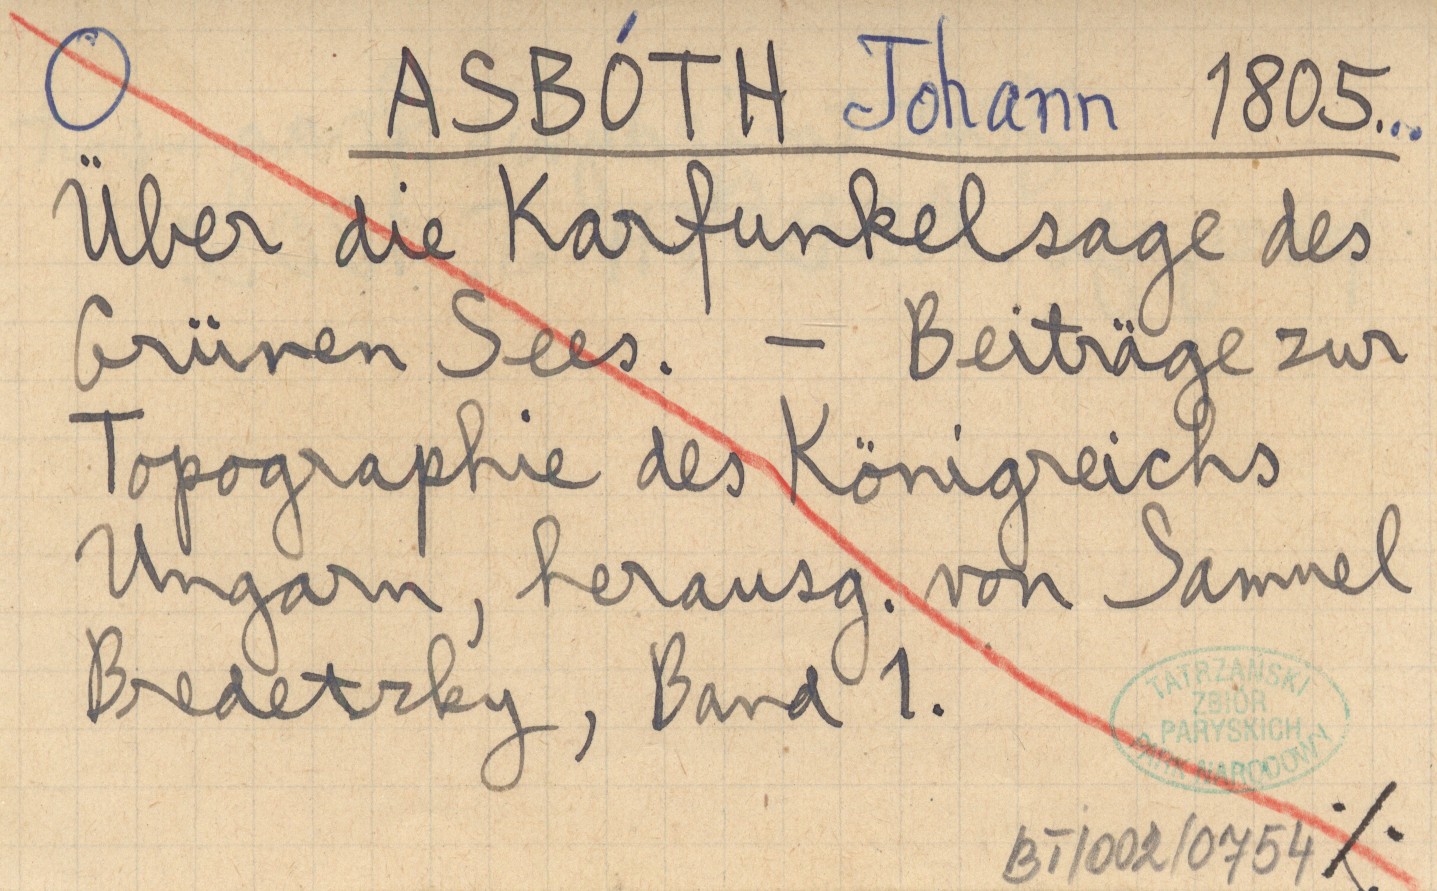 O ASBÓTH Johann 1805...
Über die Karfunkelsage des
Grünen Sees. — Beiträge zur
Topographie des Königreichs
Ungarn, herausg. von Samuel
Bredetzky, Band 1.
TATRZAŃSKI
ZBIÓR
PARYSKICH
PARK NARODOWY
BT/002/0754 ·/·